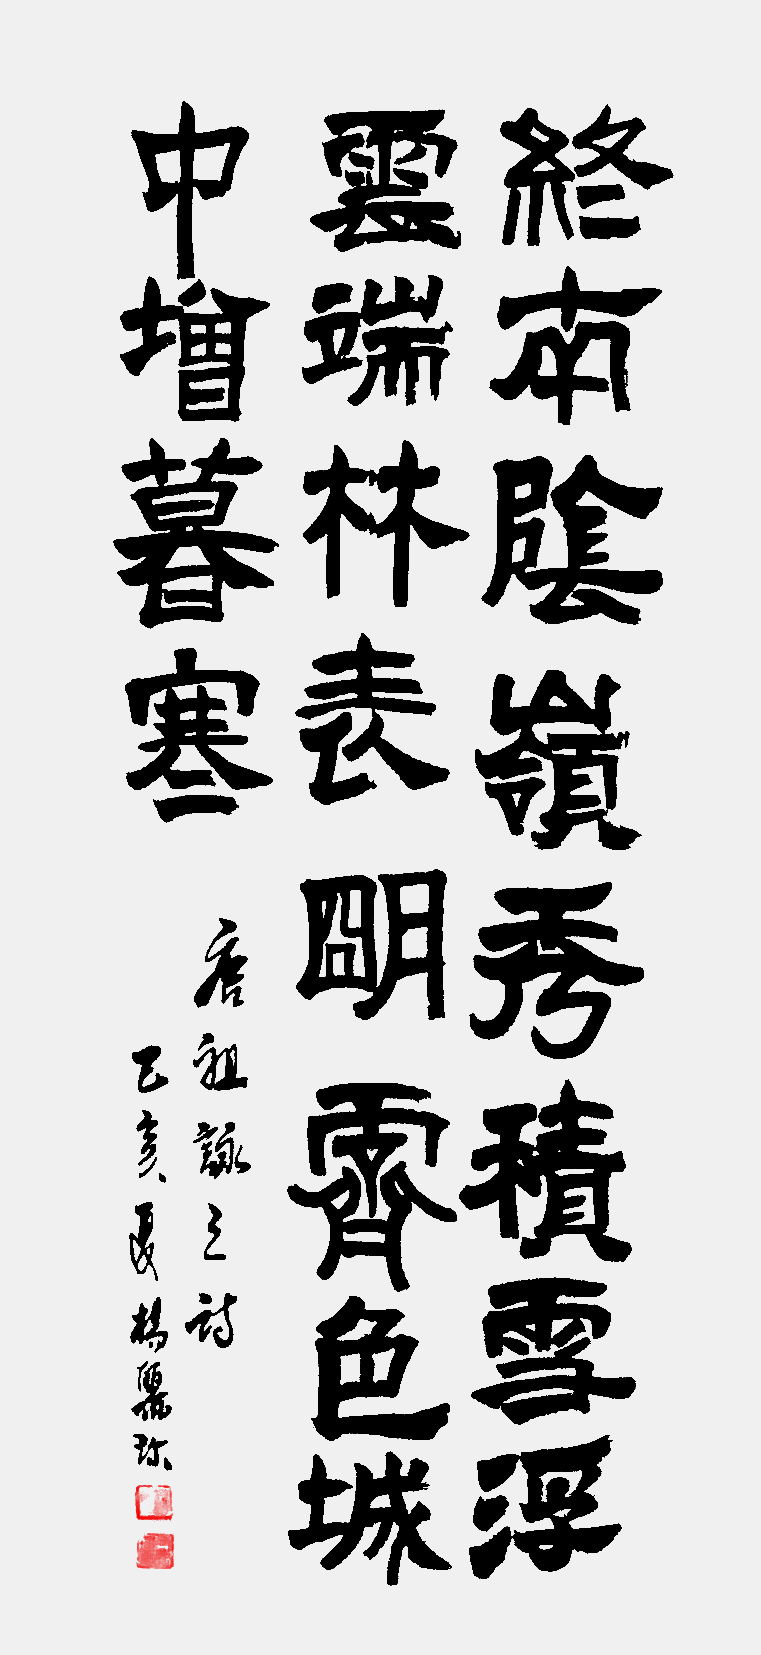 終南陰嶺秀積雪浮
雲端林表明霽色城
中增暮寒
唐祖詠之詩
己亥夏楊麗珎